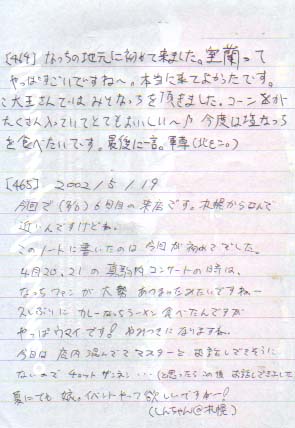 [464] なっちの地元に初めて来ました。室蘭って
やっぱすごいですね〜。本当に来てよかったです。
大王さんでは みそなっちを頂きました。コーンとかが
たくさん入っていてとてもおいしい〜♪ 今度は塩なっち
を食べたいです。最後に一言。
[465] 2002/5/19
今回で(多分)6回目の来店です。札幌からなんで
近いんですけどね。
このノートに書いたのは今回が初めてでした。
4月20、21の真駒内コンサートの日時は、
なっちファンが大勢 あつまったみたいですねー
久しぶりに カレーなっちラーメン 食べたんですが
やっぱウマイです! やみつきになりますね。
今日は 店内 混んでて マスターと お話しできそうに
ないので チョット ザンネン…(と思ったら この後 お話しできました
夏にでも 娘。イベントやって欲しいですねー!
(しんちゃん@札幌)